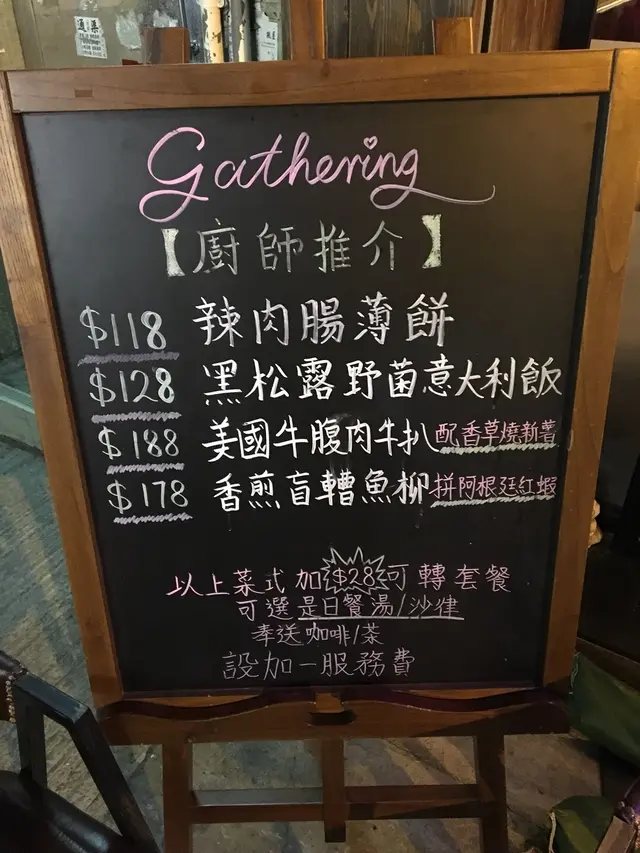 Gathering
【廚師推介】
$118 辣肉腸薄餅
$128 黑松露野菌意大利飯
$188 美國牛腹肉牛扒配香草燒新薯
$178 香煎盲轉魚柳拼阿根廷紅蝦
以上菜式加$28可轉套餐
可選是日餐湯/沙律
奉送咖啡/茶
設加一服務費